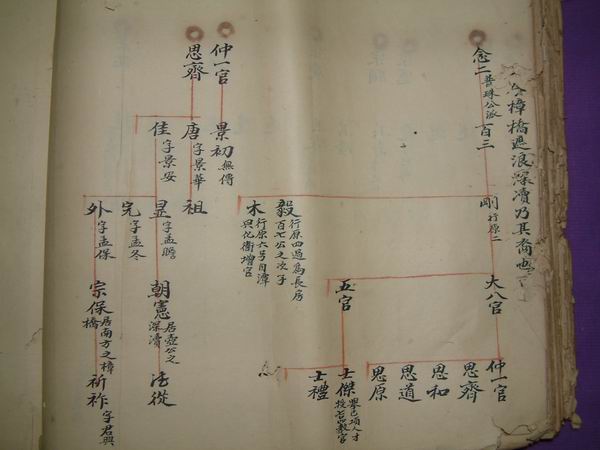 樟橋過浪深瀆乃其裔也
念二 普珠公派 百三
剛 行原二
大八官
仲一官
思齊
思和
思道
思原
五官
士傑
士禮
毅 行原四過爲長房百七公之次子
木 行原六号自漳興化衛增官
仲一官
景初 無傳
思齊
唐 字景華
祖
佳 字景安
昱 字孟瞻
朝憲 居壺公之深瀆
法從
完 字孟冬
外 字孟保
宗保 居南方之樟橋
祈祚 字君興